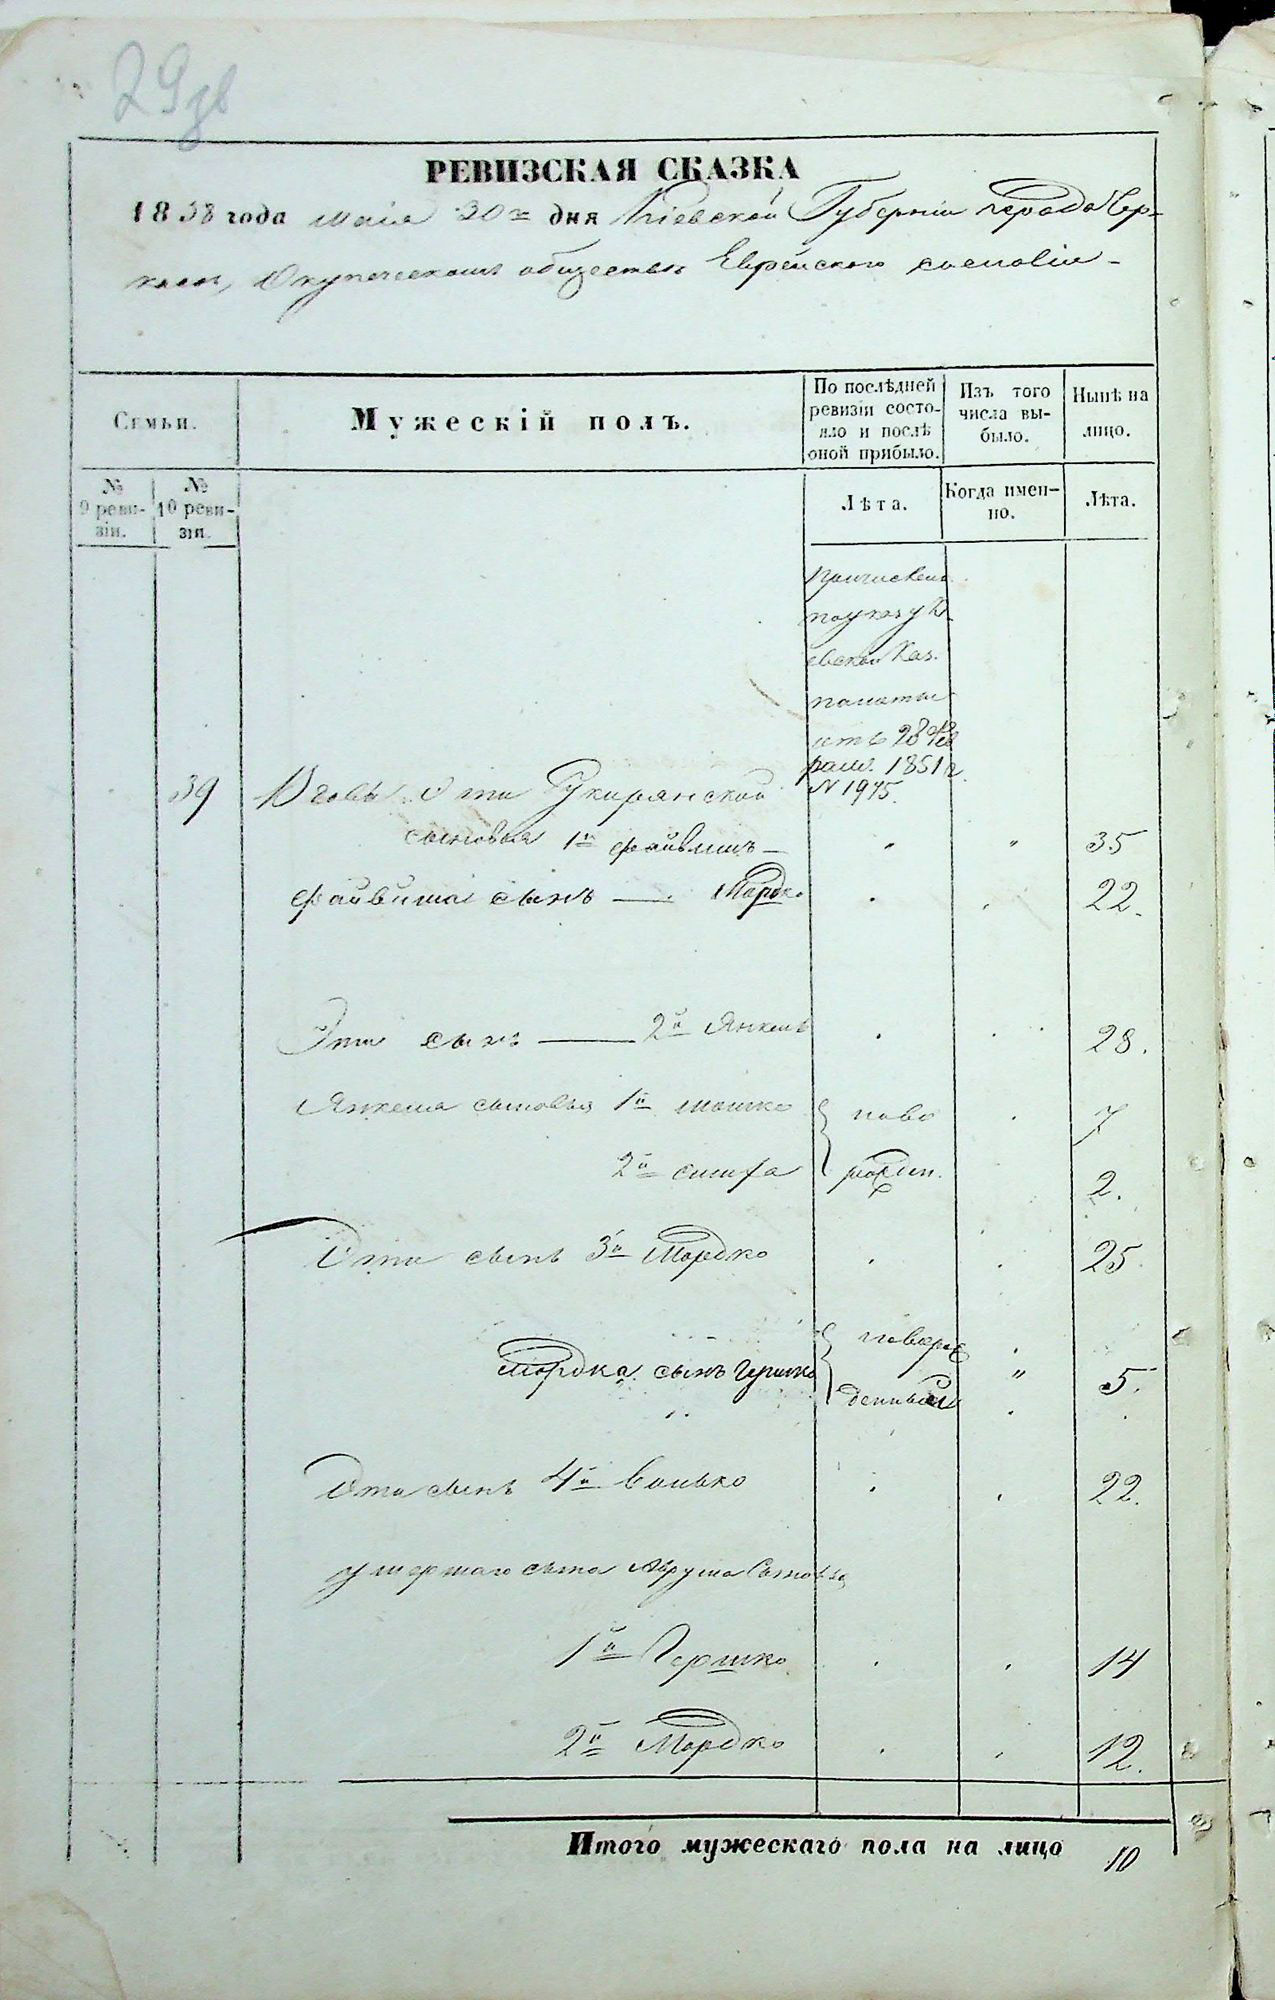 29зв
РЕВИЗСКАЯ СКАЗКА
1858 года мaiя 30го дня Кіевской Губерніи города Чер-
касъ, О купеческомъ обществѣ Еврейского сословія
Семьи.
Мужескій полъ.
По послѣдней ревизіи состо-яло и послѣ оной прибыло.
Изъ того числа вы-было.
Нынѣ на лицо.
№ 9 реви-зіи.
№ 10 реви-зіи.
Лѣта.
Когда имен-но.
Лѣта.
Причислена
по указу Кі-
евской Каз.
палаты
отъ 28 Фев
рал. 1851 г.
39 Вдовы Эти
№ 1975.
сыновья 1й Файвишъ 35
Файвиша сынъ — Мордко 22.
Эти сынъ — 2й Янкель 28.
Янкеля сыновья 1й Мошко ново 7
2й рожден. 2.
Эти сынъ 3й Мордко 25.
Мордка сынъ Гершко новорож
денный 5.
Эти сынъ 4й Волько 22.
умершаго сына Сыновья
1й Гершко 14
2й Мордко 12.
Итого мужескаго пола на лицо 10